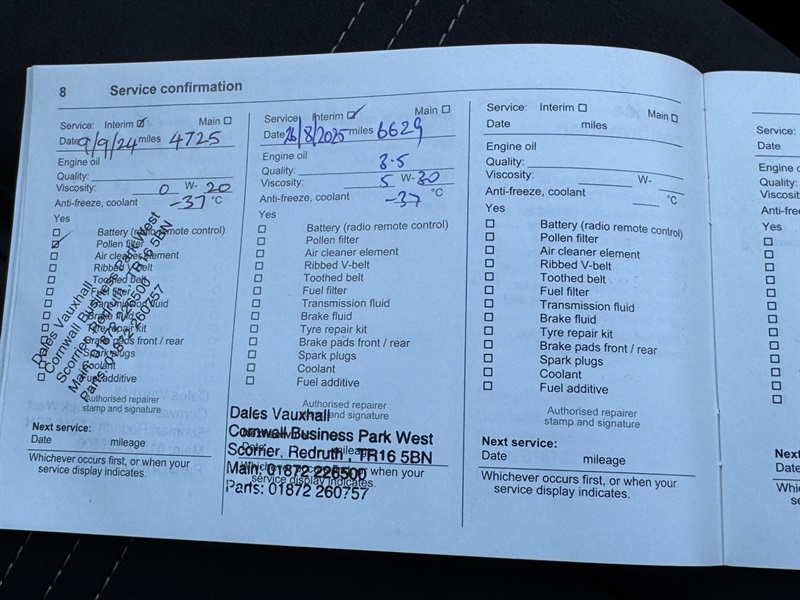 8 Service confirmation
Service: Interim Main
Date 9/9/24 miles 4725
Engine oil
Quality:
Viscosity: 0 W- 20
Anti-freeze, coolant -37 °C
Yes
Battery (radio remote control)
Pollen filter
Air cleaner element
Ribbed V-belt
Toothed belt
Fuel filter
Transmission fluid
Brake fluid
Tyre repair kit
Brake pads front / rear
Spark plugs
Coolant
Fuel additive
Dales Vauxhall
Cornwall Business Park West
Scorrier, Redruth, TR16 5BN
Main: 01872 226500
Parts: 01872 260757
Authorised repairer
stamp and signature
Next service:
Date mileage
Whichever occurs first, or when your
service display indicates.
Service: Interim Main
Date 26/8/2025 miles 6629
Engine oil 3.5
Quality:
Viscosity: 5 W- 30
Anti-freeze, coolant -37 °C
Yes
Battery (radio remote control)
Pollen filter
Air cleaner element
Ribbed V-belt
Toothed belt
Fuel filter
Transmission fluid
Brake fluid
Tyre repair kit
Brake pads front / rear
Spark plugs
Coolant
Fuel additive
Authorised repairer
stamp and signature
Dales Vauxhall
Cornwall Business Park West
Scorrier, Redruth , TR16 5BN
Main: 01872 226500
Parts: 01872 260757
Date mileage
Whichever occurs first, or when your
service display indicates.
Service: Interim Main
Date miles
Engine oil
Quality:
Viscosity: W-
Anti-freeze, coolant °C
Yes
Battery (radio remote control)
Pollen filter
Air cleaner element
Ribbed V-belt
Toothed belt
Fuel filter
Transmission fluid
Brake fluid
Tyre repair kit
Brake pads front / rear
Spark plugs
Coolant
Fuel additive
Authorised repairer
stamp and signature
Next service:
Date mileage
Whichever occurs first, or when your
service display indicates.
Service:
Date
Engine
Quality:
Viscosity:
Yes
Date